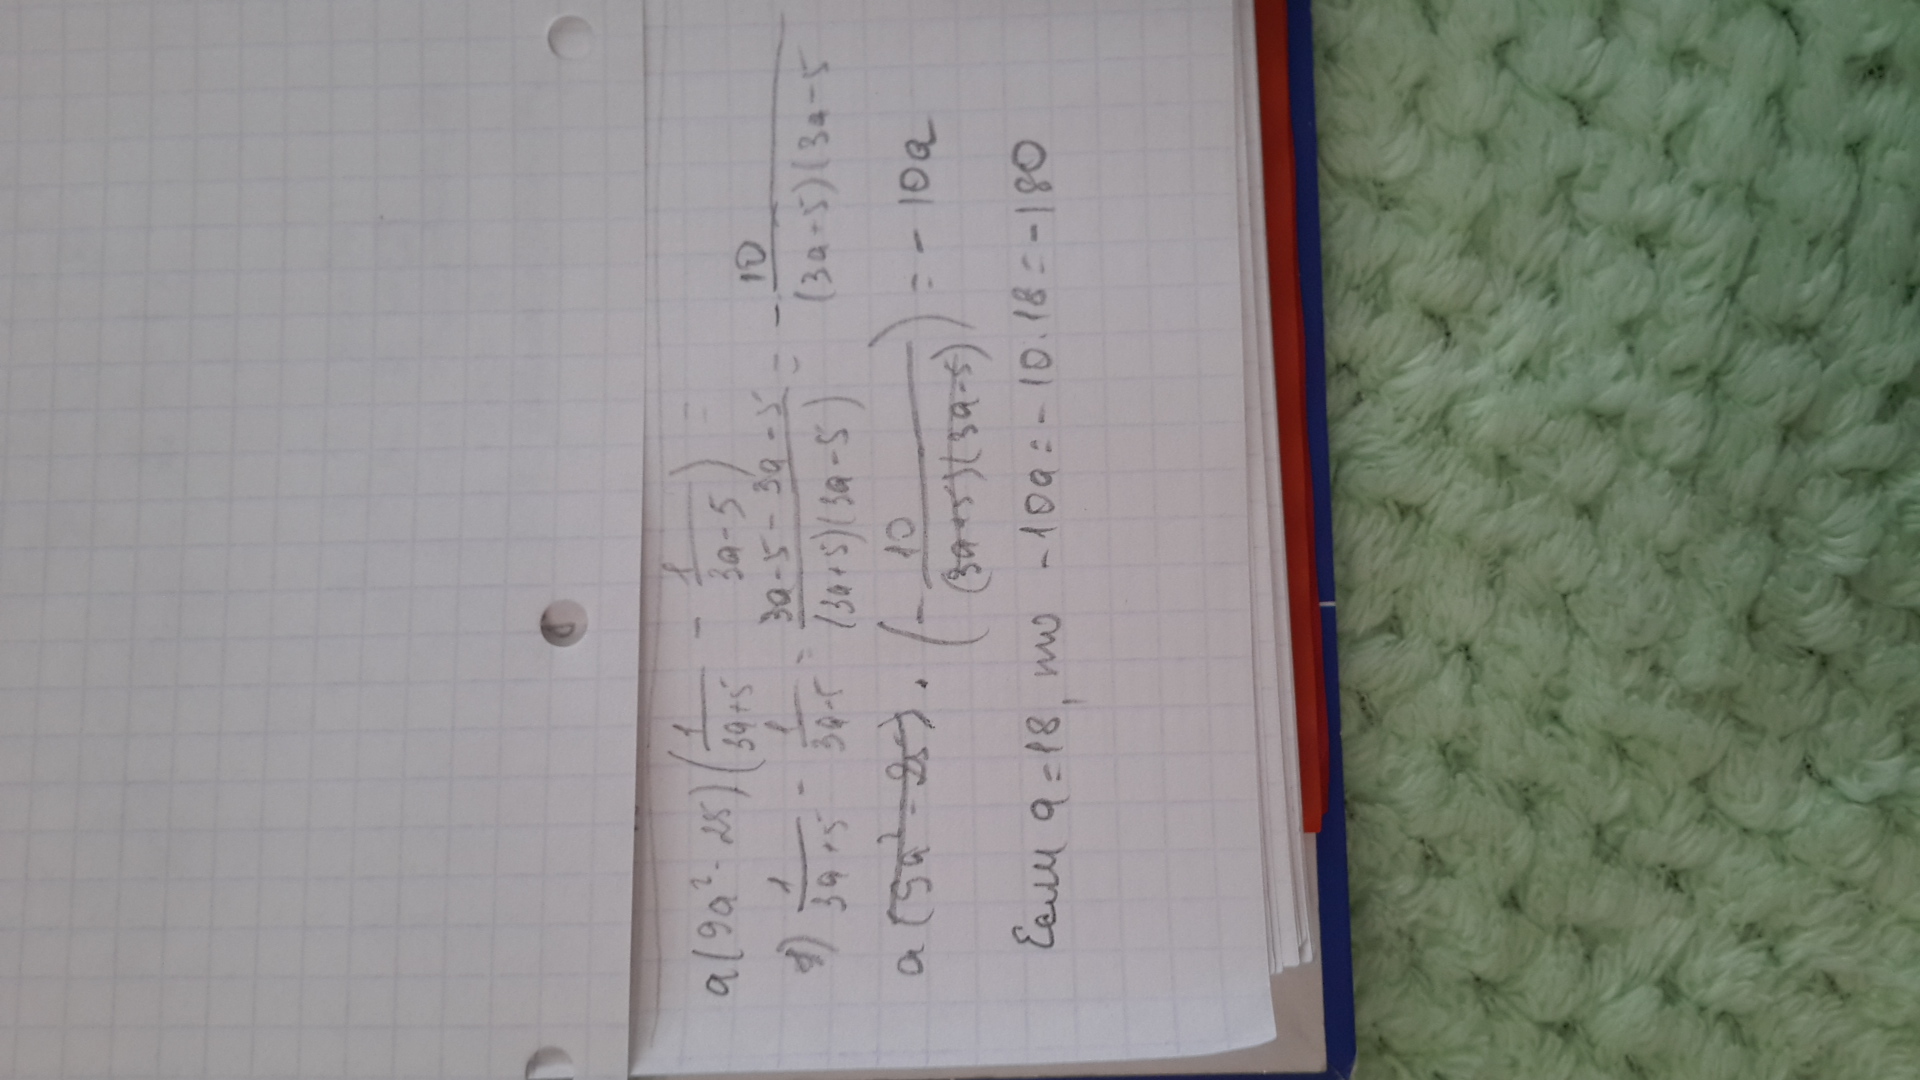 a(9a²-25)(1/(3a+5) - 1/(3a-5)) =
1) 1/(3a+5) - 1/(3a-5) = (3a-5-3a-5)/((3a+5)(3a-5)) = - 10/((3a+5)(3a-5
a(9a²-25) · (- 10/((3a+5)(3a-5))) = -10a
Если a=18, то -10a=-10·18=-180